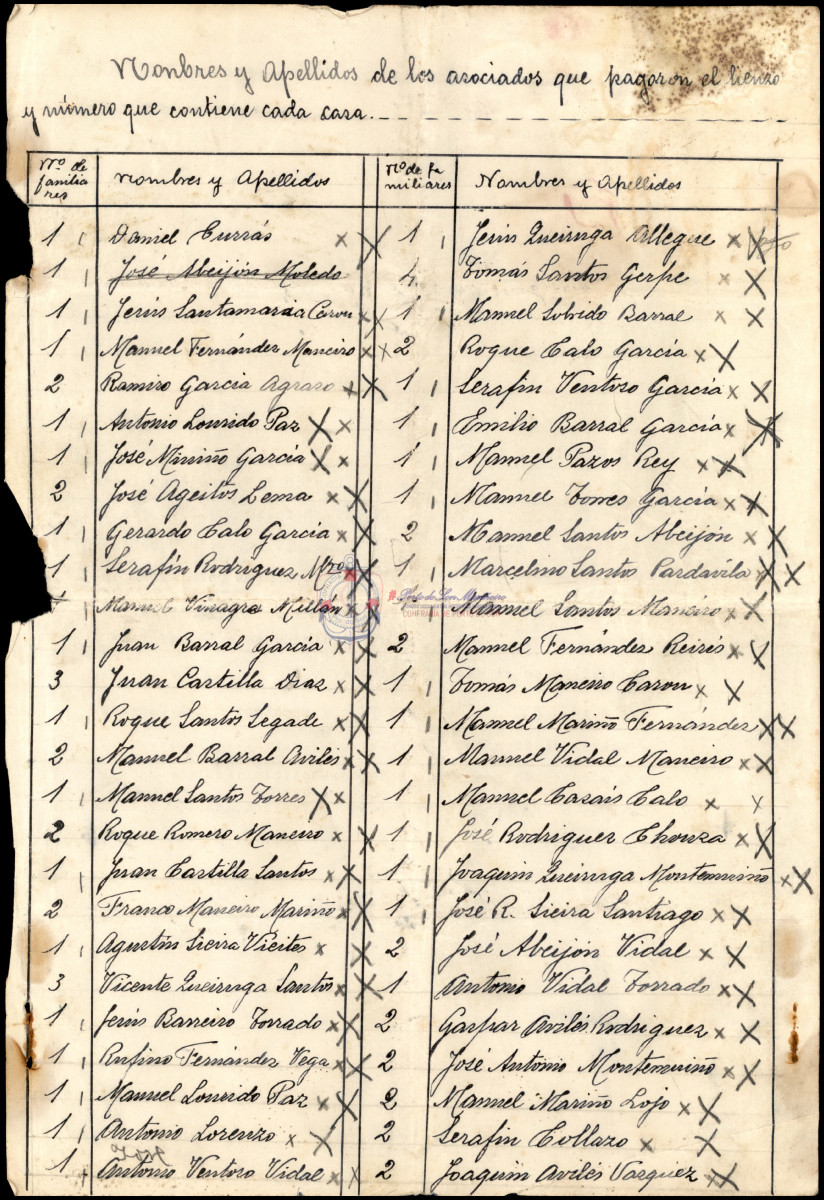 Nonbres y Apellidos de los asociados que pagaron el lienzo
y número que contiene cada casa.
Nº de familiares
Nombres y Apellidos
1 Daniel Currás
1 José Abeijón Moledo
1 Jesús Santamaria Carou
1 Manuel Fernández Maneiro
2 Ramiro García Agraso
1 Antonio Lourido Paz
1 José Miniño García
2 José Ageitos Lema
1 Gerardo Calo García
1 Serafín Rodriguez Mro
Manuel Vinagre Millán
1 Juan Barral García
3 Juan Castilla Diaz
1 Roque Santos Segade
2 Manuel Barral Avilés
1 Manuel Santos Torres
2 Roque Romero Maneiro
1 Juan Castilla Santos
2 Franco Maneiro Mariño
1 Agustín Sieira Vieites
3 Vicente Queiruga Santos
1 Jesús Barreiro Torrado
1 Rufino Fernández Vega
1 Manuel Lourido Paz
1 Antonio Lorenzo
1 Antonio Ventoso Vidal
Nº de familiares
Nombres y Apellidos
1 Jesús Queiruga Allegue
4 Tomás Santos Gerpe
1 Manuel Sobrido Barral
2 Roque Calo García
1 Serafín Ventoso García
1 Emilio Barral García
1 Manuel Pazos Rey
1 Manuel Tomes García
2 Manuel Santos Abeijón
1 Marcelino Santos Pardavila
Manuel Santos Maneiro
2 Manuel Fernández Reirís
1 Tomás Maneiro Carou
1 Manuel Mariño Fernández
1 Manuel Vidal Maneiro
1 Manuel Casais Calo
1 José Rodriguez Chouza
1 Joaquin Queiruga Montemuiño
1 José R. Sieira Santiago
2 José Abeijón Vidal
1 Antonio Vidal Torrado
2 Gaspar Avilés Rodriguez
2 José Antonio Montemuiño
2 Manuel Mariño Lojo
2 Serafin Collazo
2 Joaquin Avilés Vasquez